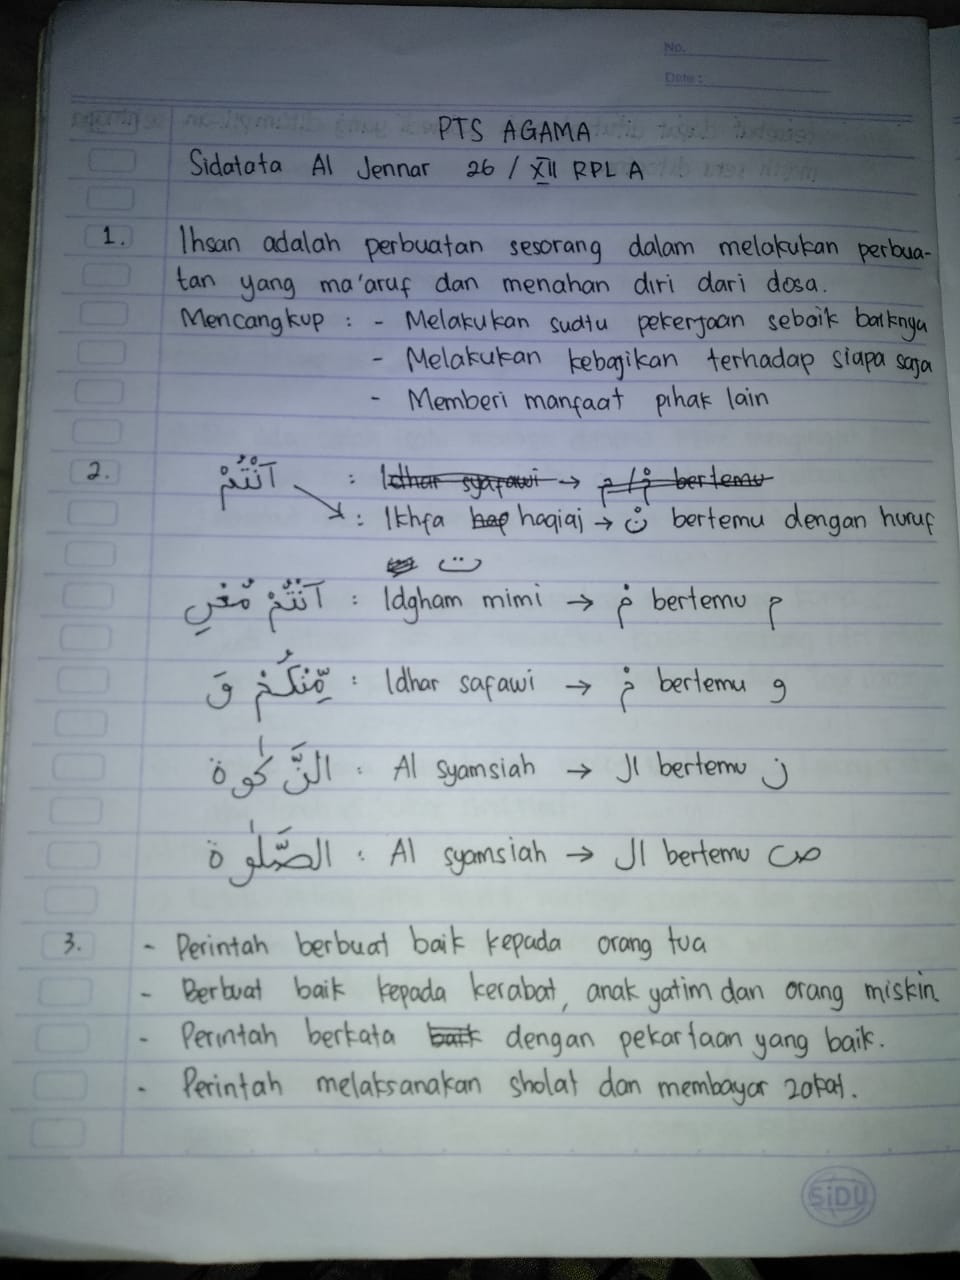 No.
Date :
PTS AGAMA
Sidatata Al Jennar 26 / XII RPL A
1. Ihsan adalah perbuatan sesorang dalam melakukan perbua-
tan yang ma'aruf dan menahan diri dari dosa.
Mencangkup : - Melakukan suatu pekerjaan sebaik baiknya
- Melakukan kebajikan terhadap siapa saja
- Memberi manfaat pihak lain
2. اَنْتُمْ : Idhar syafawi → مْ / م bertemu
: Ikhfa haqiqi → نْ bertemu dengan huruf
ت
اَنْتُمْ مُّعْرِ : Idgham mimi → مْ bertemu م
مِّنْكُمْ وَ : Idhar safawi → مْ bertemu و
النَّكٰوة : Al syamsiah → ال bertemu ن
الصَّلٰوة : Al syamsiah → ال bertemu ص
3. - Perintah berbuat baik kepada orang tua
- Berbuat baik kepada kerabat, anak yatim dan orang miskin.
- Perintah berkata baik dengan pekartaan yang baik.
- Perintah melaksanakan sholat dan membayar zakat.
SiDU